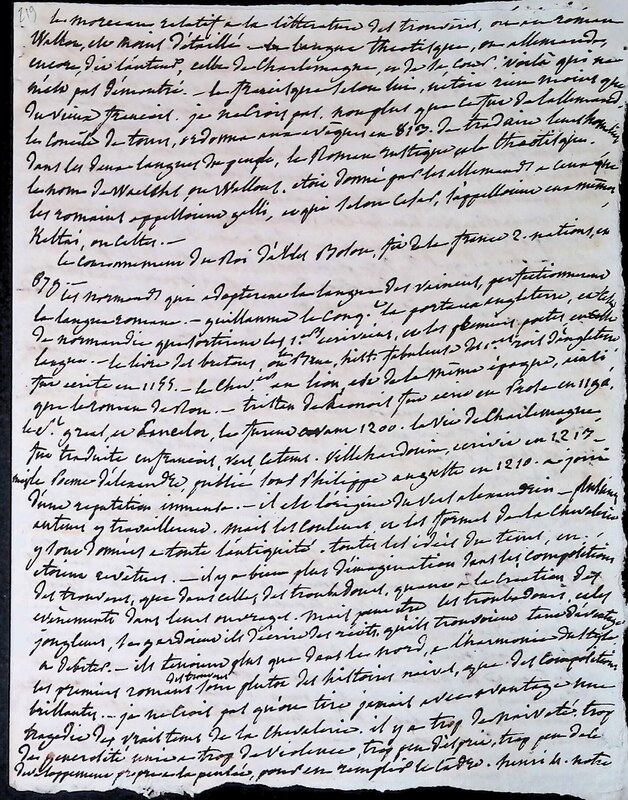 219
Le morceau relatif a la littérature des trouvères, ou au roman
Wallon, est moins détaillé – la langue theotisque, ou allemande,
encore, dit l'auteur, celle de Charlemagne, et de sa Cour. voilà qui ne
m'est pas démontré. – Le francisque selon lui, n'étoit rien moins que
du vieux francois. je ne crois pas, non plus que ce fut de l'allemand
les Conciles de tours, ordonna aux evêques en 813. de traduire leurs homelies
dans les deux langues du peuple, le Roman rustique et le theotisque.
le nom de Waelsch, ou Wallons, etoit donné par les allemands a ceux que
les romains appelloient galli, et que selon Cesar, s'appelloient eux mêmes
Keltai, ou Celtes. –
Le Couronnement du Roi d'Arles Boson, fit de la france 2. nations, en
879.
Les normands qui adopterent la langue des vaincus, perfectionnerent
la langue romane. – guillaume le Conq.t la porta en angleterre, et c'est
de normandie que sortirent les 1.ers ecrivains, et les premiers poetes en cette
langue. – le livre des bretons, ou Brut, hist. fabuleuse des rois d'angleterre
fut ecrite en 1155. – le Chev.er au lion, est de la même epoque, ainsi
que le roman de Rou. – tristan de Leonois fut ecrit en Prose en 1190,
le S.t greal, et Lancelot, le furent avant 1200. la vie de Charlemagne,
fut traduite en francois, vers ce tems. villehardouin, ecrivit en 1213 –
mais le Poeme d'alexandre, publié sous Philippe auguste en 1210. a joui
d'une reputation immense. – il est l'origine du vers alexandrin – plusieurs
auteurs y travaillerent. mais les couleurs et les formes de la Chevalerie
y sont données a toute l'antiquité. toutes les idées du tems, en
etoient revêtues. – il y a bien plus d'imagination dans les compositions
des trouveres, que dans celles des troubadours, quant a la creation des
evènements dans leurs ouvrages. mais peut etre les troubadours, et les
jongleurs, se gardoient ils d'ecrire des recits, qu'ils trouvoient tant d'avantage
a debiter. – ils tenoient plus que dans le nord, a l'harmonie du style
les premiers romans des trouveres sont plutot des histoires naives, que des compositions
brillantes. – je ne crois pas qu'on tire jamais avec avantage une
tragedie des vrais tems de la chevalerie. il y a trop de naiveté, trop
de generosité unie a trop de violence, trop peu d'esprit, trop peu de
developpement propre a la pensée, pour en remplir le Cadre. henri 4. notre